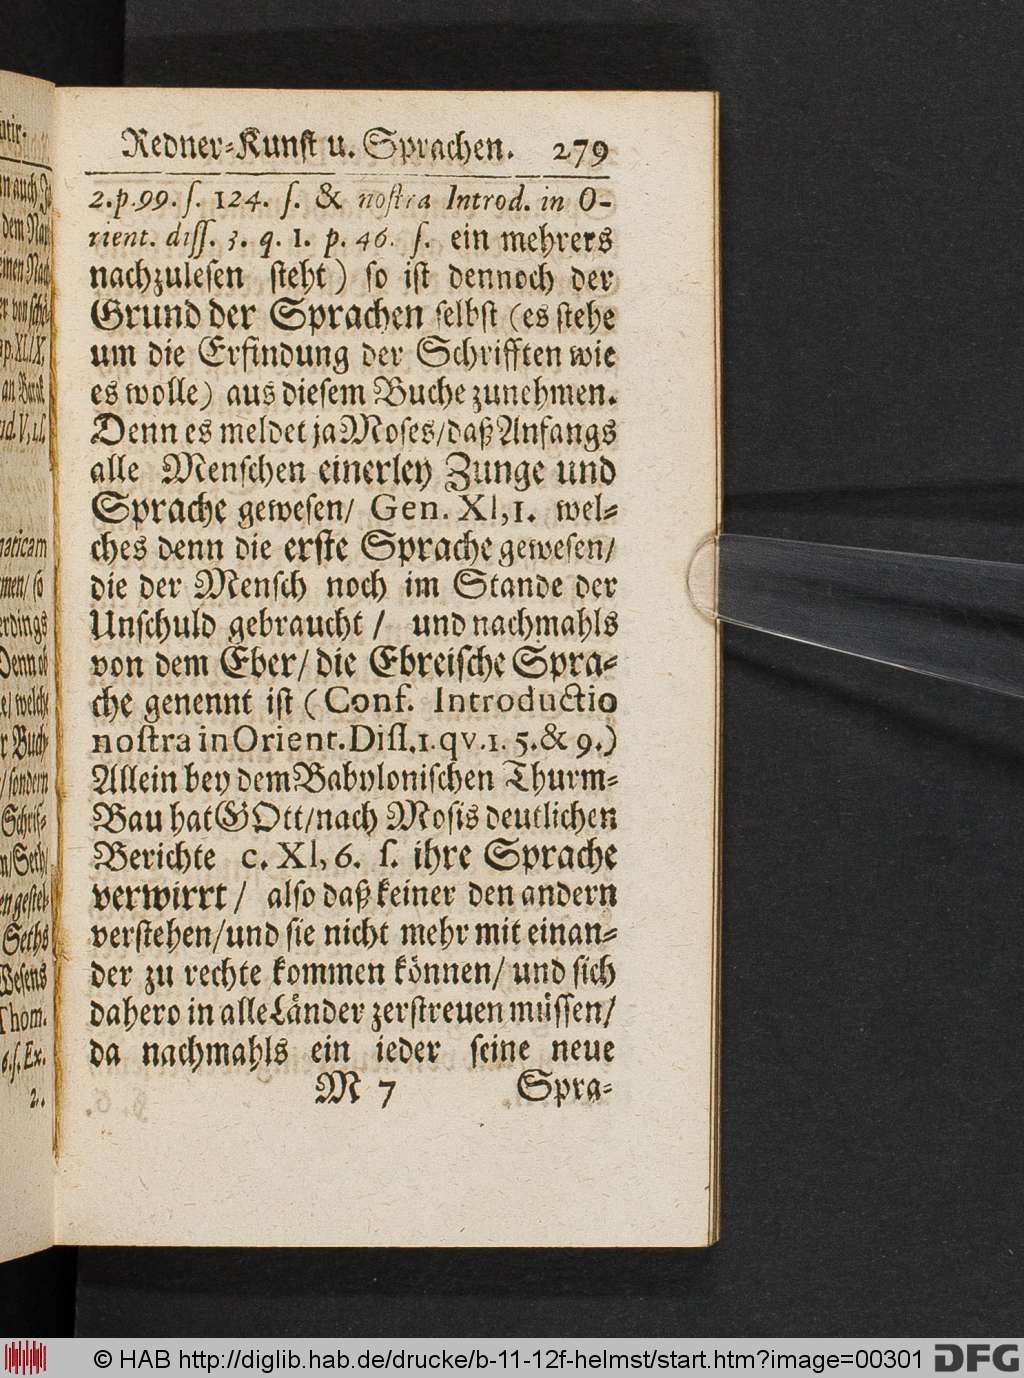 Redner-Kunst u. Sprachen. 279
2. p. 99. ſ. 124. ſ. & noſtra Introd. in O-
rient. diſſ. 3. q. 1. p. 46. ſ. ein mehrers
nachzuleſen ſteht) ſo iſt dennoch der
Grund der Sprachen ſelbſt (es ſtehe
um die Erfindung der Schrifften wie
es wolle) aus dieſem Buche zunehmen.
Denn es meldet ja Moſes/ daß Anfangs
alle Menſchen einerley Zunge und
Sprache geweſen/ Gen. XI, 1. wel-
ches denn die erſte Sprache geweſen/
die der Menſch noch im Stande der
Unſchuld gebraucht / und nachmahls
von dem Eber/ die Ebreiſche Spra-
che genennt iſt (Conf. Introductio
noſtra in Orient. Diſſ. 1. qv. 1. 5. & 9.)
Allein bey dem Babyloniſchen Thurm-
Bau hat GOtt/ nach Moſis deutlichen
Berichte c. XI, 6. ſ. ihre Sprache
verwirrt/ alſo daß keiner den andern
verſtehen/ und ſie nicht mehr mit einan-
der zu rechte kommen können/ und ſich
dahero in alle Länder zerſtreuen müſſen/
da nachmahls ein ieder ſeine neue
M 7 Spra-
© HAB http://diglib.hab.de/drucke/b-11-12f-helmst/start.htm?image=00301 DFG